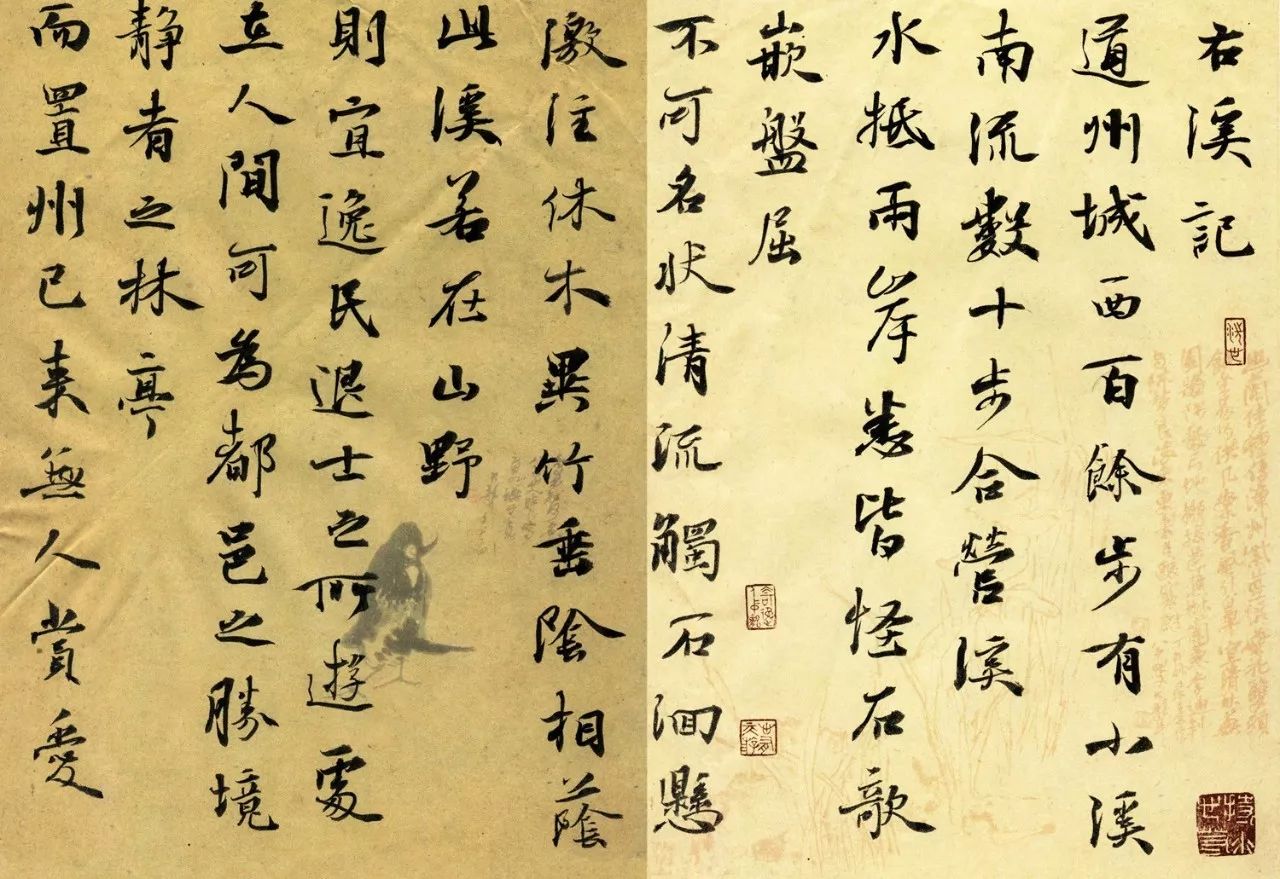 右溪記
道州城西百餘步有小溪
南流數十步合營溪
水抵兩岸悉皆怪石欹
嵌盤屈
不可名狀清流觸石洄懸
激注休木異竹垂陰相蔭
此溪若在山野
則宜逸民退士之所遊處
在人間可為都邑之勝境
靜者之林亭
而置州已來無人賞愛